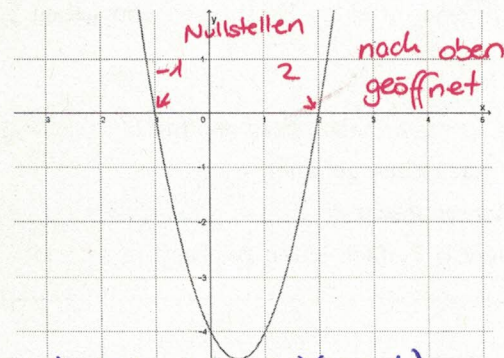 y
Nullstellen
nach oben
geöffnet
-1
2
1
x
3
2
1
0
1
2
3
4
5
-1
-2
-3
-4